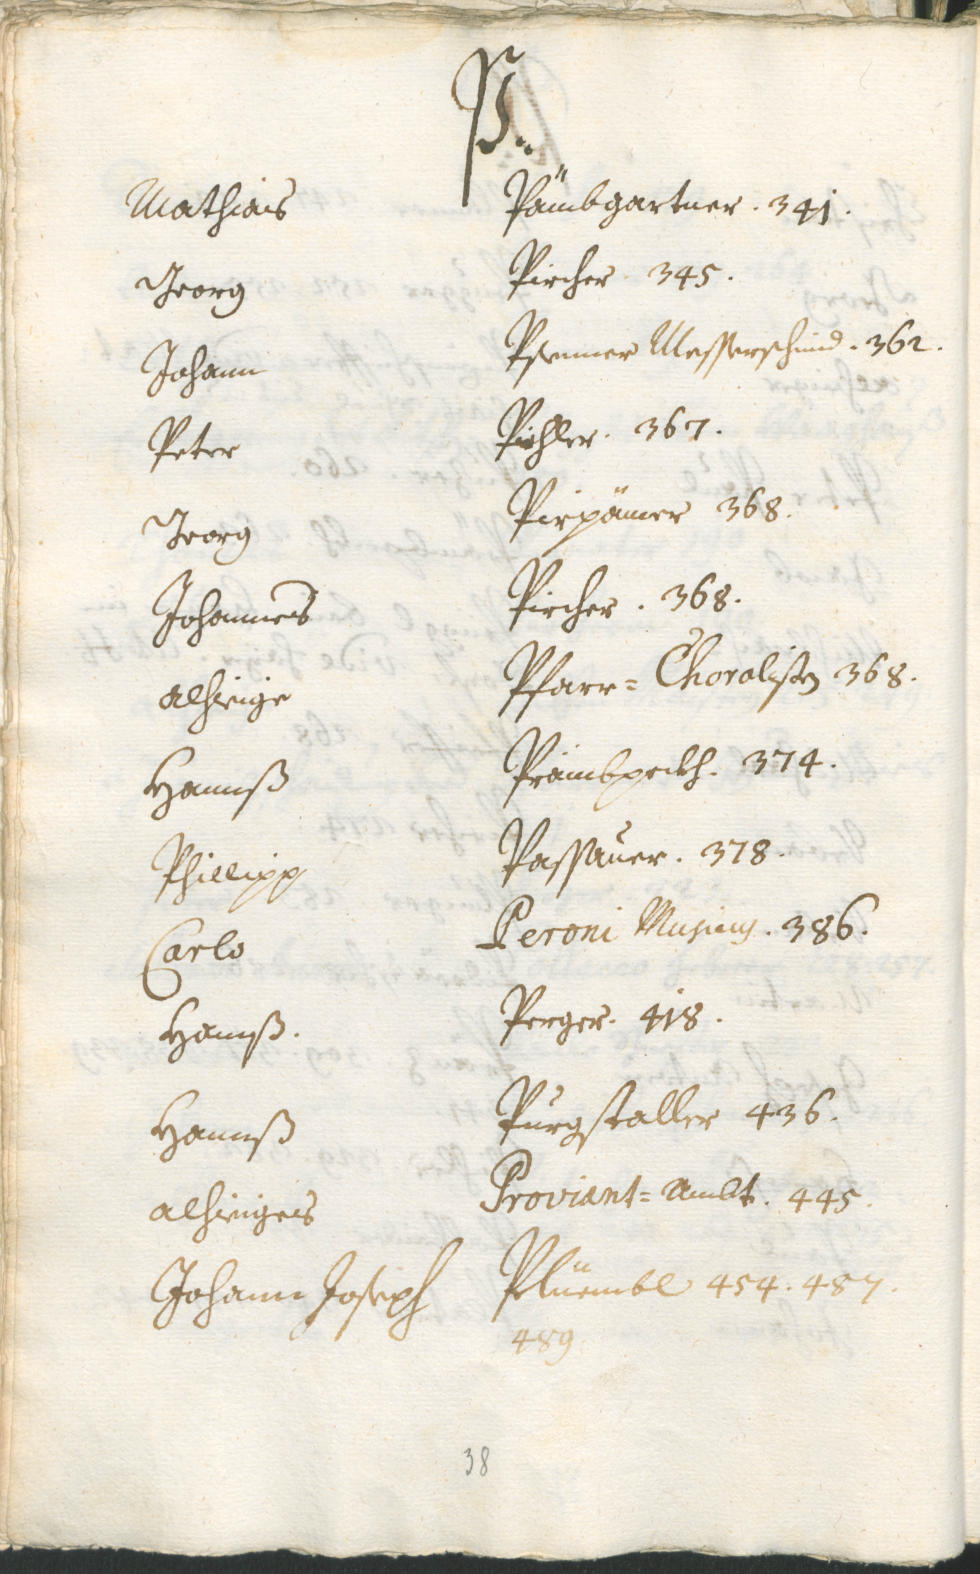 P.
Mathias Pämbgartner. 341.
Georg Pircher. 345.
Johann Psenner Messerschmid. 362.
Peter Pichler. 367.
Georg Pirpämer 368.
Johannes Pircher. 368.
alhiesige Pfarr= Choralisten 368.
Hannß Prämbpeckh. 374.
Phillipp Passauer. 378.
Carlo Peroni Musicus. 386.
Hannß. Perger. 418.
Hannß Purgstaller 436.
alhieiges Proviant= Ambt. 445.
Johann Joseph Plüembl 454. 487.
489
38